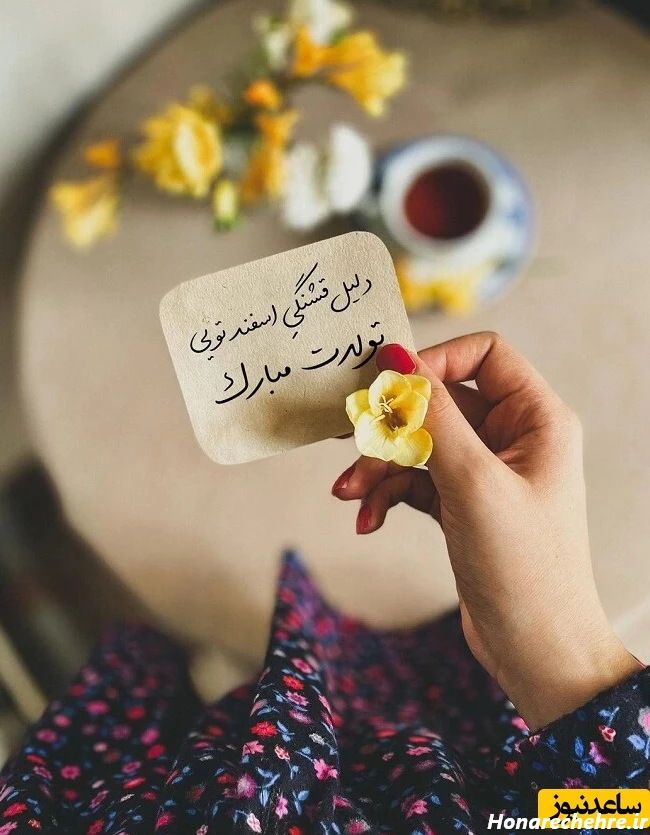 دلیل قشنگیِ اسفند تویی
تولدت مبارک
ساعدنیوز
Honarechehre.ir